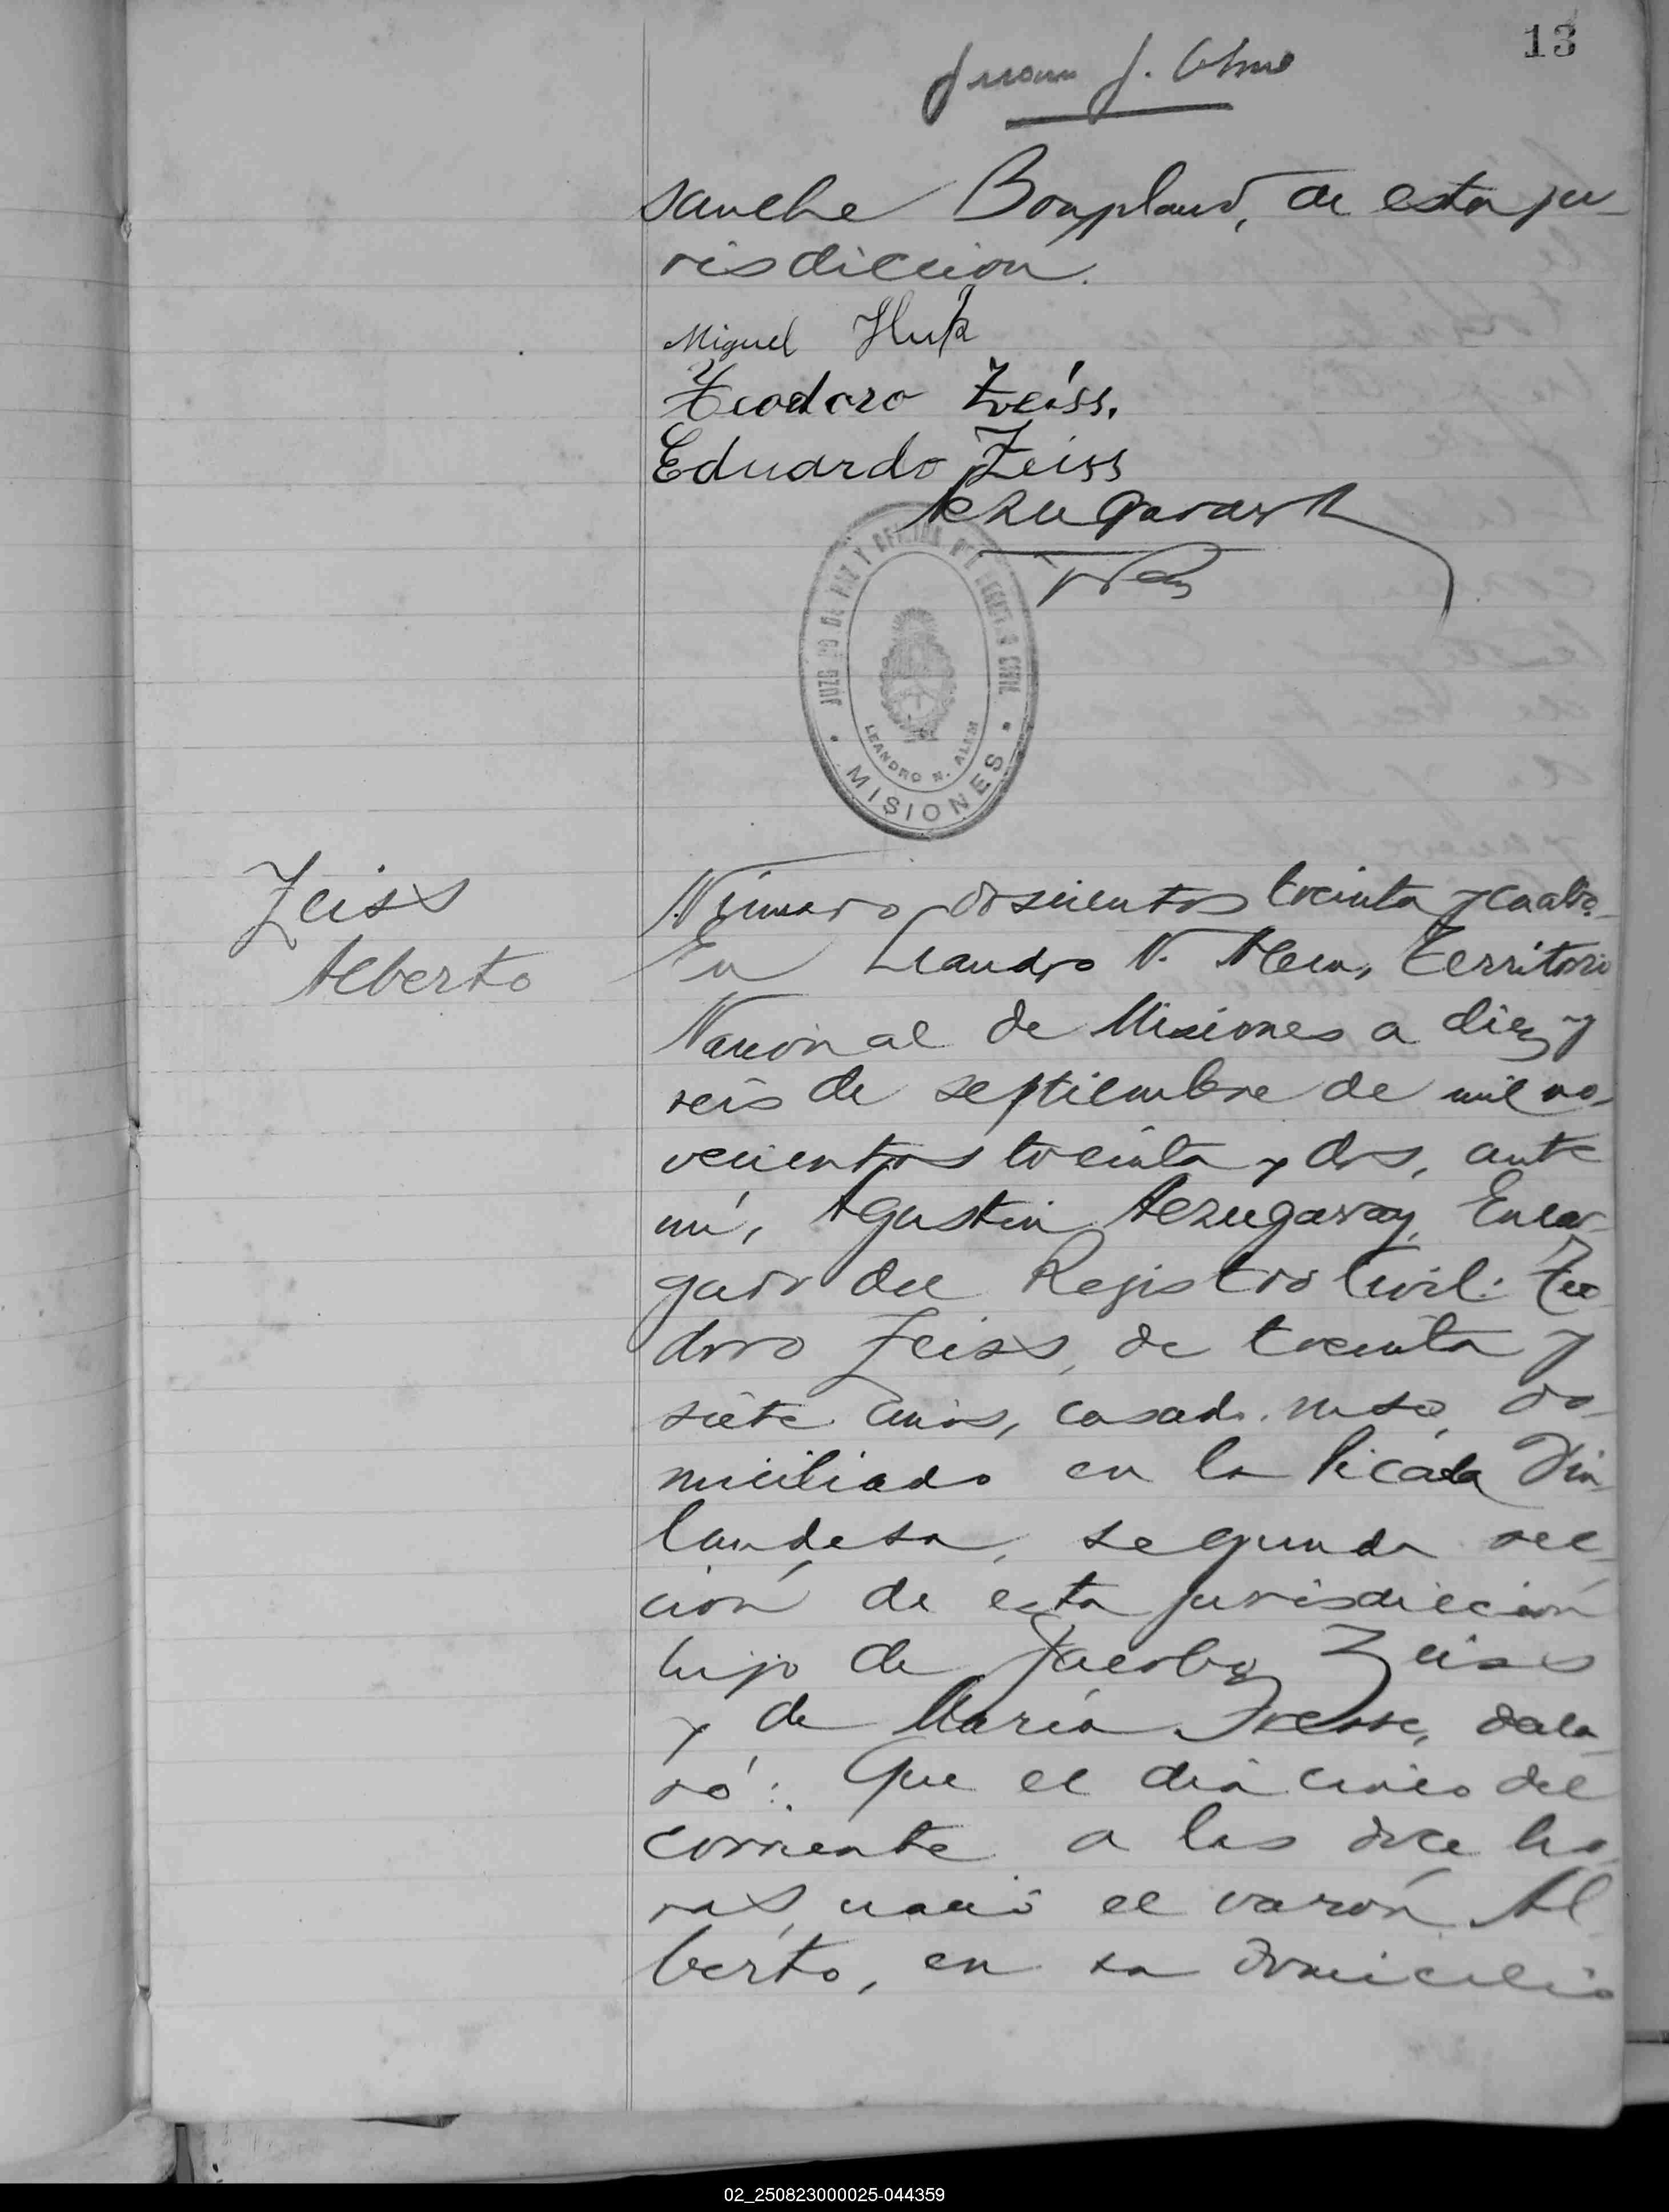 13
Juan J.
sanche Bonpland, de esta ju-
risdiccion.
Miguel Huk
Teodoro Zeiss.
Eduardo Zeiss
Aezugaray
JUZGADO DE PAZ Y OFICINA DEL REGISTRO CIVIL
LEANDRO N. ALEM
• MISIONES •
Zeiss
Alberto
Número doscientos treinta y cuatro.
En Leandro N. Alem, Territorio
Nacional de Misiones a diez y
seis de septiembre de mil no-
vecientos treinta y dos, ante
mí, Agustin Aezugaray, Encar-
gado del Registro Civil: Teo
doro Zeiss, de treinta y
siete años, casado, ruso, do-
miciliado en la Picada Fin-
landesa, segunda sec-
ción de esta jurisdicción
hijo de Jacobo Zeiss
y de María, decla-
ró: Que el dia cinco del
corriente a las doce ho-
ras, nació el varón Al-
berto, en su domicilio
02_250823000025-044359